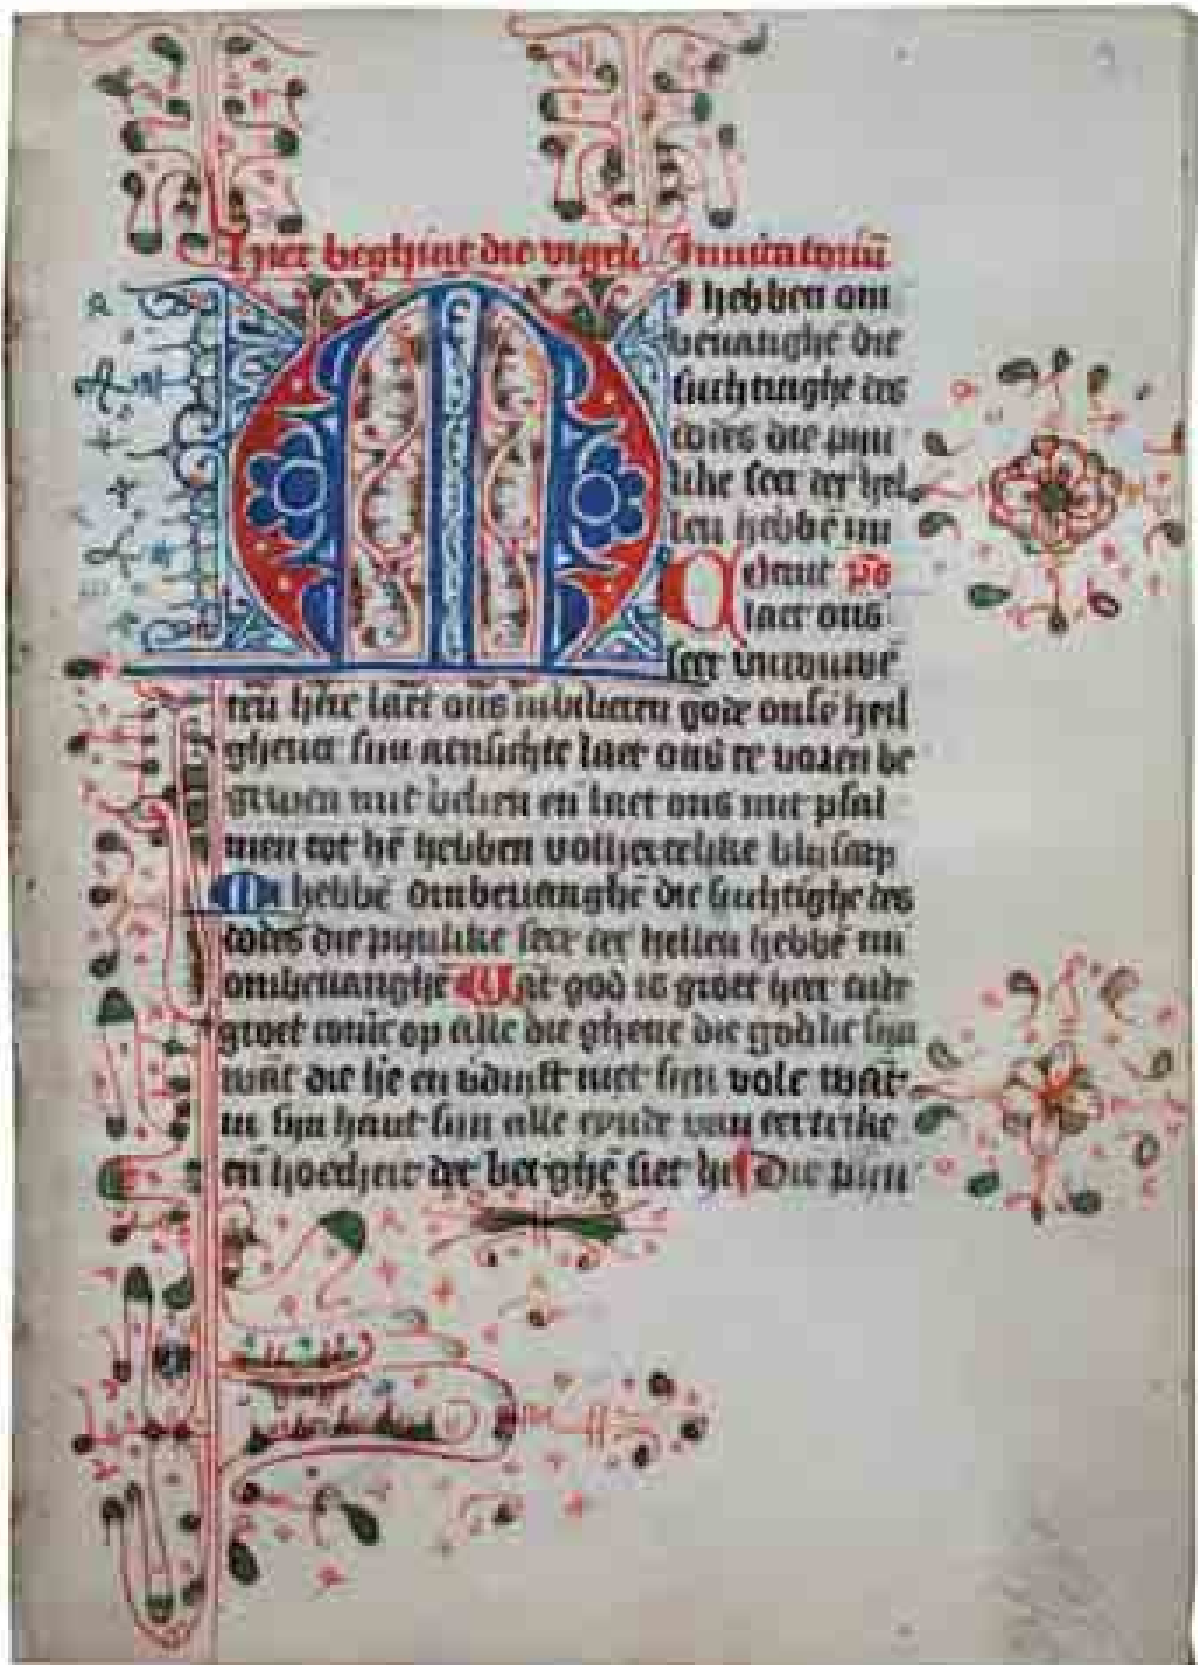 Hier beghint die vigeli Inuitatoriū
MI hebben om
beuanghē die
suchtinghe des
dodes die pijn
like seer der hel
len hebbē mi
Comt ps̄
laet ons
seer vrouwē
den here laet ons iubileren gode onse heil
gheuer sijn aensichte laet ons te voren be
gripen mit belien eñ laet ons mit psal
men tot hē hebben volherdelike bliscap
Mi hebbē ombeuanghē die suchtighe des
dodes die pijnlike seer der hellen hebbē mi
ombeuanghē Wāt god is groet heer ende
groet coninc op alle die ghene die godlic sijn
wāt die he en vdrijft niet sijn volc wāt
in sijn hant sijn alle eynde van eertrike
eñ hoecheit der berghē siet he Die pijn